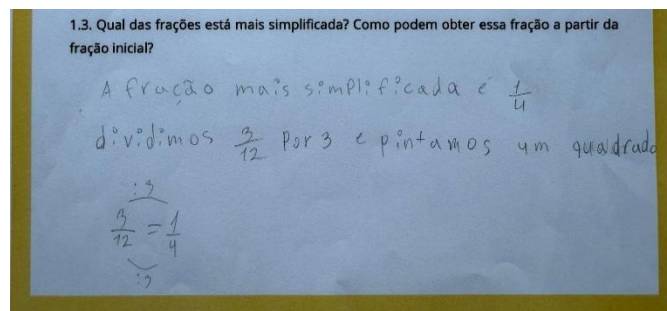 1.3. Qual das frações está mais simplificada? Como podem obter essa fração a partir da
fração inicial?
A fração mais simplificada é 1/4
dividimos 3/12 por 3 e pintamos um quadrado
:3
3/12 = 1/4
:3